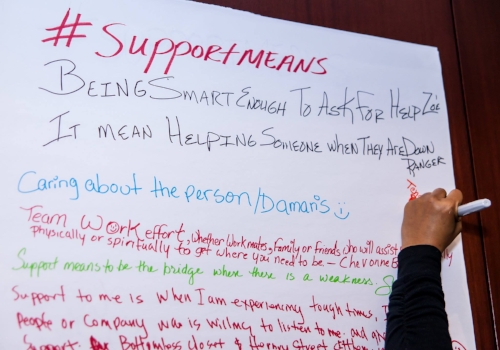 #SUPPORTMEANS
BEING SMART ENOUGH TO ASK FOR HELP Zoe
IT MEAN HELPING SOMEONE WHEN THEY ARE DOWN
RANGER
Caring about the person/Damaris
Team Work effort, whether workmates, family or friends who will assist
physically or spiritually to get where you need to be - Chevonne
Support means to be the bridge where there is a weakness.
Support to me is when I am experiencing tough times,
People or Company who is willing to listen to me. and
Support. Bottomless Closet &